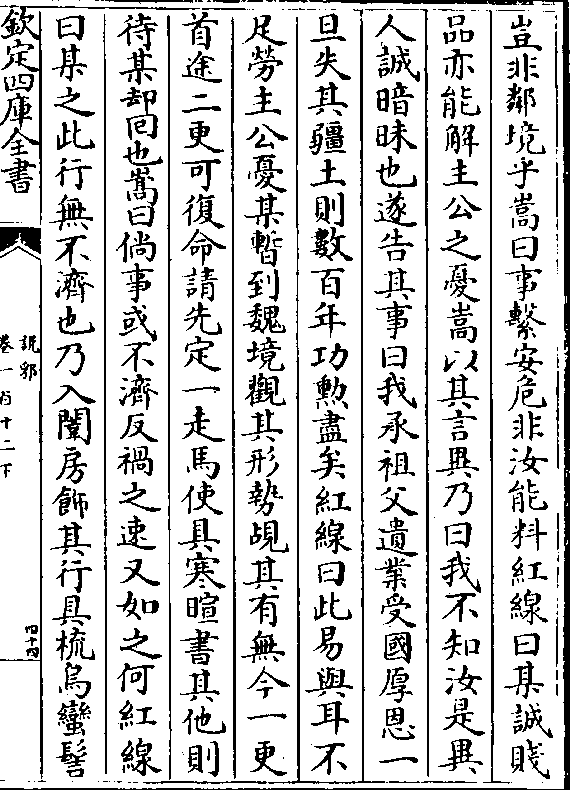 豈非鄰境乎嵩曰事繫安危非汝能料紅線曰某誠賤
品亦能解主公之憂嵩以其言異乃曰我不知汝是異
人誠暗昧也遂告其事曰我承祖父遺業受國厚恩一
旦失其疆土則數百年功勲盡矣紅線曰此易與耳不
足勞主公憂某暫到魏境觀其形勢覘其有無今一更
首途二更可復命請先定一走馬使具寒暄書其他則
待某却囘也嵩曰倘事或不濟反禍之速又如之何紅線
曰某之此行無不濟也乃入闈房飾其行具梳烏蠻髻
欽定四庫全書
說郛
卷一百十二下
四十四